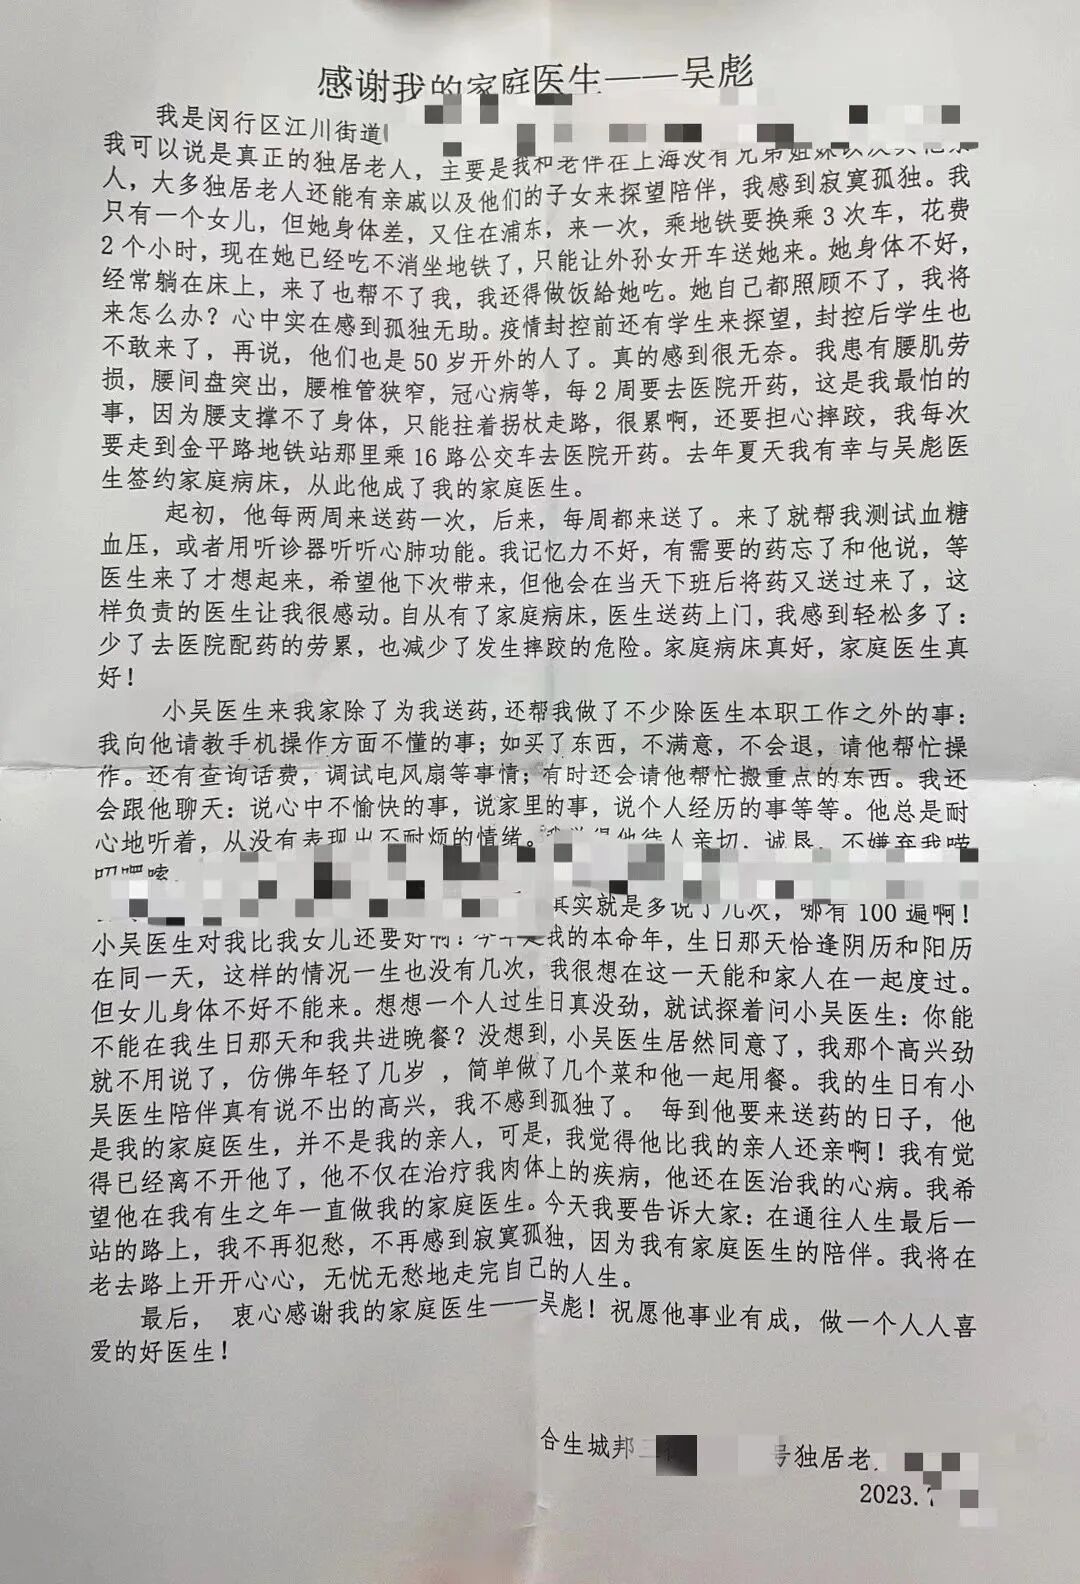 感谢我的家庭医生——吴彪
我是闵行区江川街道
我可以说是真正的独居老人，主要是我和老伴在上海没有兄弟姐妹以及其他亲
人，大多独居老人还能有亲戚以及他们的子女来探望陪伴，我感到寂寞孤独。我
只有一个女儿，但她身体差，又住在浦东，来一次，乘地铁要换乘3次车，花费
2个小时，现在她已经吃不消坐地铁了，只能让外孙女开车送她来。她身体不好，
经常躺在床上，来了也帮不了我，我还得做饭給她吃。她自己都照顾不了，我将
来怎么办？心中实在感到孤独无助。疫情封控前还有学生来探望，封控后学生也
不敢来了，再说，他们也是50岁开外的人了。真的感到很无奈。我患有腰肌劳
损，腰间盘突出，腰椎管狭窄，冠心病等，每2周要去医院开药，这是我最怕的
事，因为腰支撑不了身体，只能拄着拐杖走路，很累啊，还要担心摔跤，我每次
要走到金平路地铁站那里乘16路公交车去医院开药。去年夏天我有幸与吴彪医
生签约家庭病床，从此他成了我的家庭医生。
起初，他每两周来送药一次，后来，每周都来送了。来了就帮我测试血糖
血压，或者用听诊器听听心肺功能。我记忆力不好，有需要的药忘了和他说，等
医生来了才想起来，希望他下次带来，但他会在当天下班后将药又送过来了，这
样负责的医生让我很感动。自从有了家庭病床，医生送药上门，我感到轻松多了：
少了去医院配药的劳累，也减少了发生摔跤的危险。家庭病床真好，家庭医生真
好！
小吴医生来我家除了为我送药，还帮我做了不少除医生本职工作之外的事：
我向他请教手机操作方面不懂的事；如买了东西，不满意，不会退，请他帮忙操
作。还有查询话费，调试电风扇等事情；有时还会请他帮忙搬重点的东西。我还
会跟他聊天：说心中不愉快的事，说家里的事，说个人经历的事等等。他总是耐
心地听着，从没有表现出不耐烦的情绪。我觉得他待人亲切，诚恳，不嫌弃我唠
叨啰嗦。
其实就是多说了几次，哪有100遍啊！
小吴医生对我比我女儿还要好啊！今年是我的本命年，生日那天恰逢阴历和阳历
在同一天，这样的情况一生也没有几次，我很想在这一天能和家人在一起度过。
但女儿身体不好不能来。想想一个人过生日真没劲，就试探着问小吴医生：你能
不能在我生日那天和我共进晚餐？没想到，小吴医生居然同意了，我那个高兴劲
就不用说了，仿佛年轻了几岁 ，简单做了几个菜和他一起用餐。我的生日有小
吴医生陪伴真有说不出的高兴，我不感到孤独了。 每到他要来送药的日子，他
是我的家庭医生，并不是我的亲人，可是，我觉得他比我的亲人还亲啊！我有觉
得已经离不开他了，他不仅在治疗我肉体上的疾病，他还在医治我的心病。我希
望他在我有生之年一直做我的家庭医生。今天我要告诉大家：在通往人生最后一
站的路上，我不再犯愁，不再感到寂寞孤独，因为我有家庭医生的陪伴。我将在
老去路上开开心心，无忧无愁地走完自己的人生。
最后， 衷心感谢我的家庭医生——吴彪！祝愿他事业有成，做一个人人喜
爱的好医生！
合生城邦 号独居老
2023.